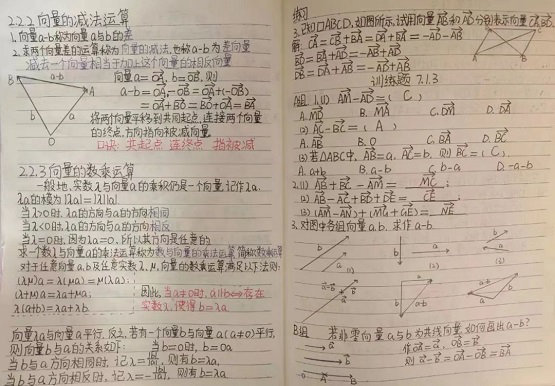 2.2.2 向量的减法运算
1.向量a-b称为向量a与b的差
2.求两个向量差的运算称为向量的减法,也称a-b为差向量
减去一个向量相当于加上这个向量的相反向量
a-b
B
A
b
a
O
向量a=OA,b=OB,则
a-b=OA-OB=OA+(-OB)
=OA+BO=BO+OA=BA
将两个向量平移到共同起点,连接两个向量
的终点,方向指向被减向量.
口诀:共起点 连终点 指被减
2.2.3 向量的数乘运算
一般地,实数λ与向量a的乘积仍是一个向量,记作λa.
λa的模为|λa|=|λ||a|
当λ>0时,λa的方向与a的方向相同
当λ<0时,λa的方向与a的方向相反
当λ=0时,因为λa=0.所以其方向是任意的
求一个数λ与向量a的乘法运算称为数与向量的乘法运算 简称数乘运算
对于任意向量a,b及任意实数λ,μ,向量的数乘运算满足以下法则:
(λμ)a=λ(μa)=μ(λa);
(λ+μ)a=λa+μa;
λ(a+b)=λa+λb.
因此,当a≠0时,a∥b⟺存在
实数λ,使得b=λa
向量λa与向量a平行,反之,若有一个向量b与向量a(a≠0)平行,
则向量b与a的关系如下: 当b=0时,b=0a
当b与a方向相同时,记λ=|b|/|a|,则有b=λa,
当b与a方向相反时,记λ=-|b|/|a|,则有b=λa
练习
3.已知□ABCD,如图所示,试用向量AB和AD分别表示向量CA,BD,
解: CA=CB+BA=DA+BA=-AD-AB
BD=BA+AD=-AB+AD
DB=DA+AB=-AD+AB
训练题 7.1.3
A组 1.(1) AM-AD=( C )
A.MD B.MA C.DM D.DA
(2) AC-BC=( A )
A.AB B.0 C.BA D.BC
(3) 若△ABC中,AB=a,AC=b,则BC=( C )
A.a+b B.a-b C.b-a D.-a-b
2.(1) AB+BC-AM= MC ;
(2) AB-AC+BD+DE= CE ;
(3) (AM-AN)+(MG+GE)= NE
3.对图中各组向量a,b,求作a-b
(1)
(2)
B组 若非零向量a与b为共线向量,如何画出a-b?
作OA=a,OB=b
则a-b=OA-OB=BA